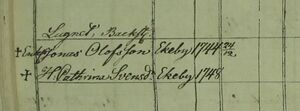 Lugnet, Backst.
Enkl. Jonas Olofsson Ekeby 1744 24/12
H. Cathrina Svensdr Ekeby 1748